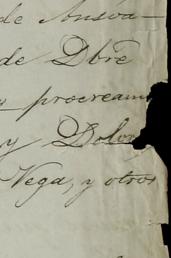 de Ausva-
de Dbre
y procream
y Dolor
Vega, y otros